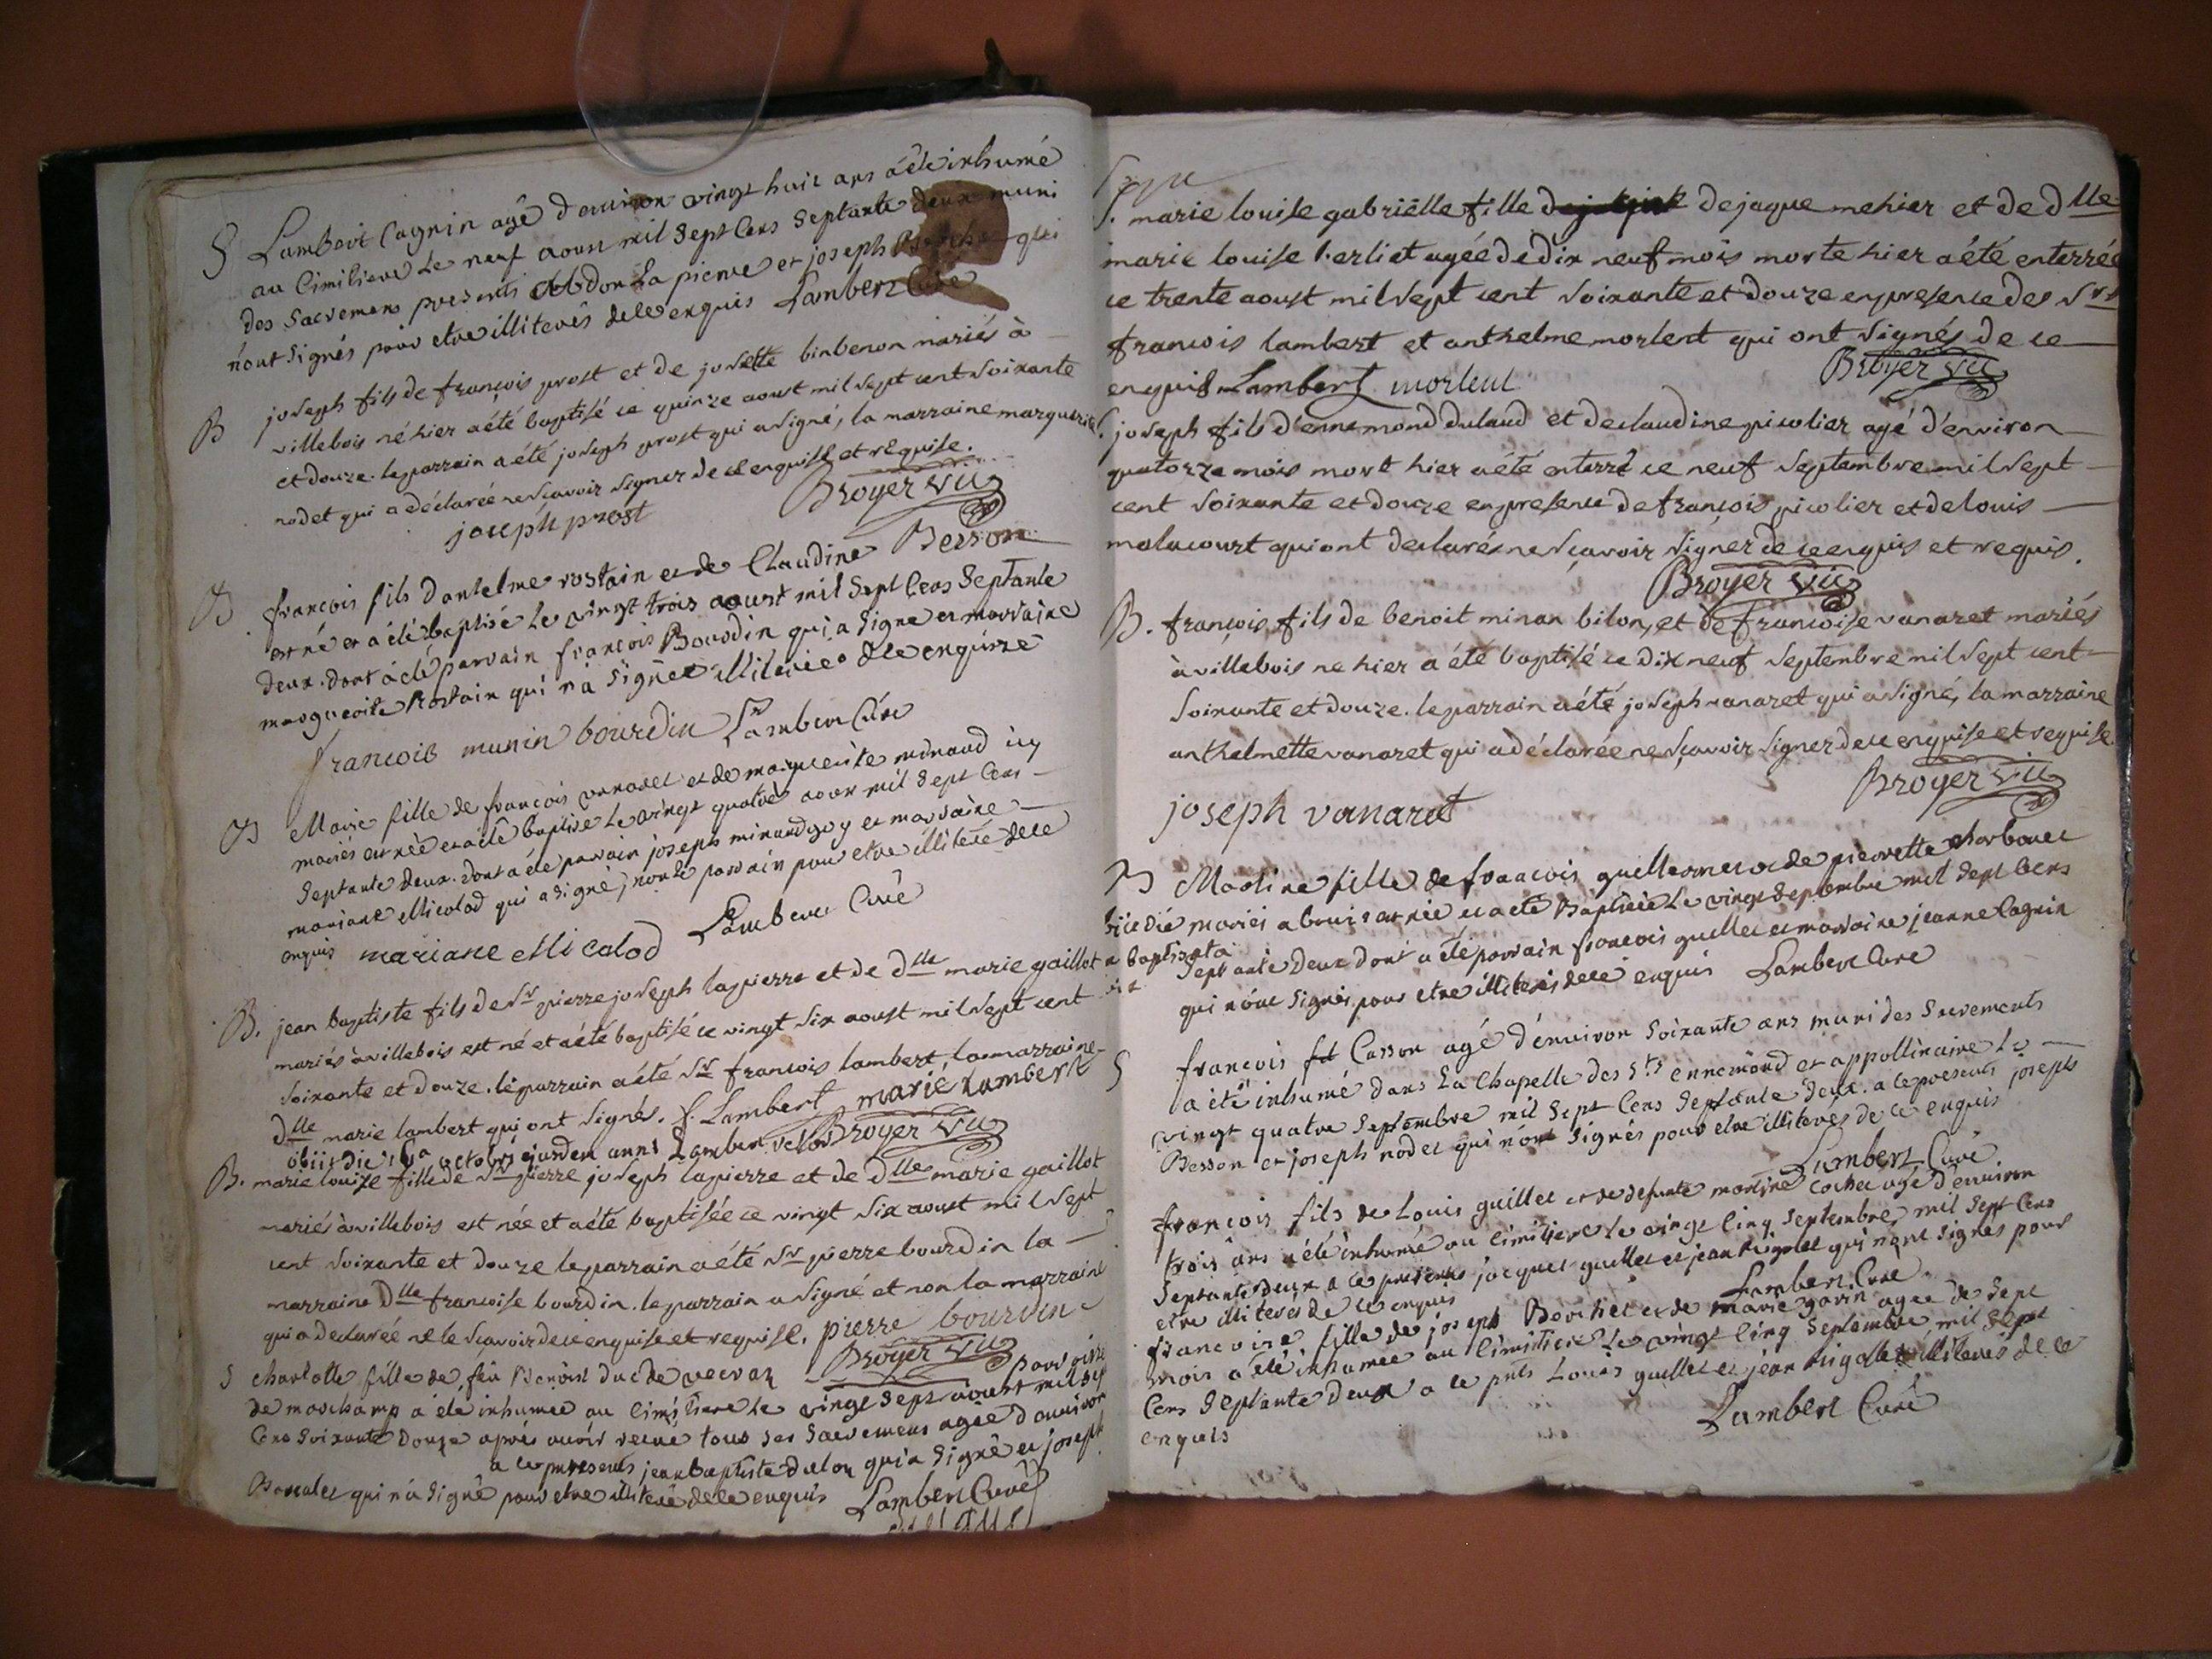 S Lambert Cagnin agé d'environ vingt huit ans a été inhumé
au Cimitiere le neuf aoust mil sept Cens septante deux muni
des sacremens presents Abdon La pierre et joseph qui
n'ont signés pour etre illiterés de ce enquis Lambert Curé
B joseph fils de françois prost et de josette binbenon mariés à
villebois né hier a été baptisé ce quinze aoust mil sept cent soixante
et douze. le parrain a été joseph prost qui a signé, la marraine marguerite
nodet qui a déclarée ne sçavoir signer de ce enquise et requise.
joseph prost Broyer vic
B françois fils d'antelme rostain et de Claudine Besson
est né et a été baptisé le vingt trois aoust mil sept Cens septante
deux. dont a été parrain françois Bourdin qui a signé et marraine
margueritte Rostain qui n'a signée illiterée de ce enquise
francois munin bourdin Lambert Curé
B Marie fille de françois vanaret et de marguerite minand icy
mariés est née et a été baptisé le vingt quatre aoust mil sept Cens
septante deux. dont a été parrain joseph minand guy et marraine
mariane Micolod qui a signé, non le parrain pour etre illiteré de ce
enquis mariane Micolod Lambert Curé
B. jean baptiste fils de Sr pierre joseph lapierre et de dlle marie gaillot
mariés à villebois est né et a été baptisé ce vingt six aoust mil sept cent
soixante et douze. le parrain a été Sr françois lambert la marraine
dlle marie lambert qui ont signés. f. Lambert marie lambert
obiit die octobris ejusdem anni Lambert Broyer vic
B. marie louise fille de Sr pierre joseph lapierre et de dlle marie gaillot
mariés à villebois est née et a été baptisée ce vingt six aoust mil sept
cent soixante et douze le parrain a été Sr pierre bourdin la
marraine dlle françoise bourdin. le parrain a signé et non la marraine
qui a declarée ne le sçavoir de ce enquise et requise. pierre bourdin
Broyer vic
S charlotte fille de feu Benoist duc de paroisse
de marchamp a été inhumée au Cimitiere le vingt sept aoust mil sept
Cens soixante douze après avoir receue tous ses sacremens agée d'environ
a ce presents jean baptiste dulou qui a signé et joseph
qui n'a signé pour etre illiteré de ce enquis Lambert Curé
S. marie louise gabriëlle fille de jaque mehier et de dlle
marie louise berliet agée de dix neuf mois morte hier a été enterrée
ce trente aoust mil sept cent soixante et douze en presence des Srs
francois lambert et anthelme morlent qui ont signés de ce
enquis Lambert morlent Broyer vic
S. joseph fils d'ennemond dulaud et de claudine picolier agé d'environ
quatorze mois mort hier a été enterré ce neuf septembre mil sept
cent soixante et douze en presence de françois picolier et de louis
malacourt qui ont declarés ne sçavoir signer de ce enquis et requis.
Broyer vic
B. françois fils de benoit minan bilon, et de francoise vanaret mariés
à villebois ne hier a été baptisé ce dix neuf septembre mil sept cent
soixante et douze. le parrain a été joseph vanaret qui a signé, la marraine
anthelmette vanaret qui a déclarée ne sçavoir signer de ce enquise et requise.
Broyer vic
joseph vanaret
B Martine fille de francois guillermet et de pierrette charbonet
mariés a est née et a été Baptisée le vingt septembre mil sept Cens
baptisata septante deux dont a été parrain francois guillet et marraine jeanne Cagnin
qui n'ont signés pour etre illiterés de ce enquis Lambert Curé
S francois Casson agé d'environ soixante ans muni des sacrements
a été inhumé dans la Chapelle des Sts ennemond et appollinaire le
vingt quatre septembre mil sept Cens septante deux. a ce presents joseph
Besson et joseph nodet qui n'ont signés pour etre illiterés de ce enquis
Lambert Curé
françois fils de Louis guillet et de defunte martine cochet agé d'environ
trois ans a été inhumé au Cimitiere le vingt cinq septembre mil sept Cens
septante deux a ce presents jacques guillet et jean Rigolet qui n'ont signés pour
etre illiterés de ce enquis Lambert Curé
francoise fille de joseph Bovihet et de marie gavin agée de sept
mois a été inhumée au Cimitiere le vingt cinq septembre mil sept
Cens septante deux a ce pnts Louis guillet et jean Rigollet illiterés de ce
enquis Lambert Curé